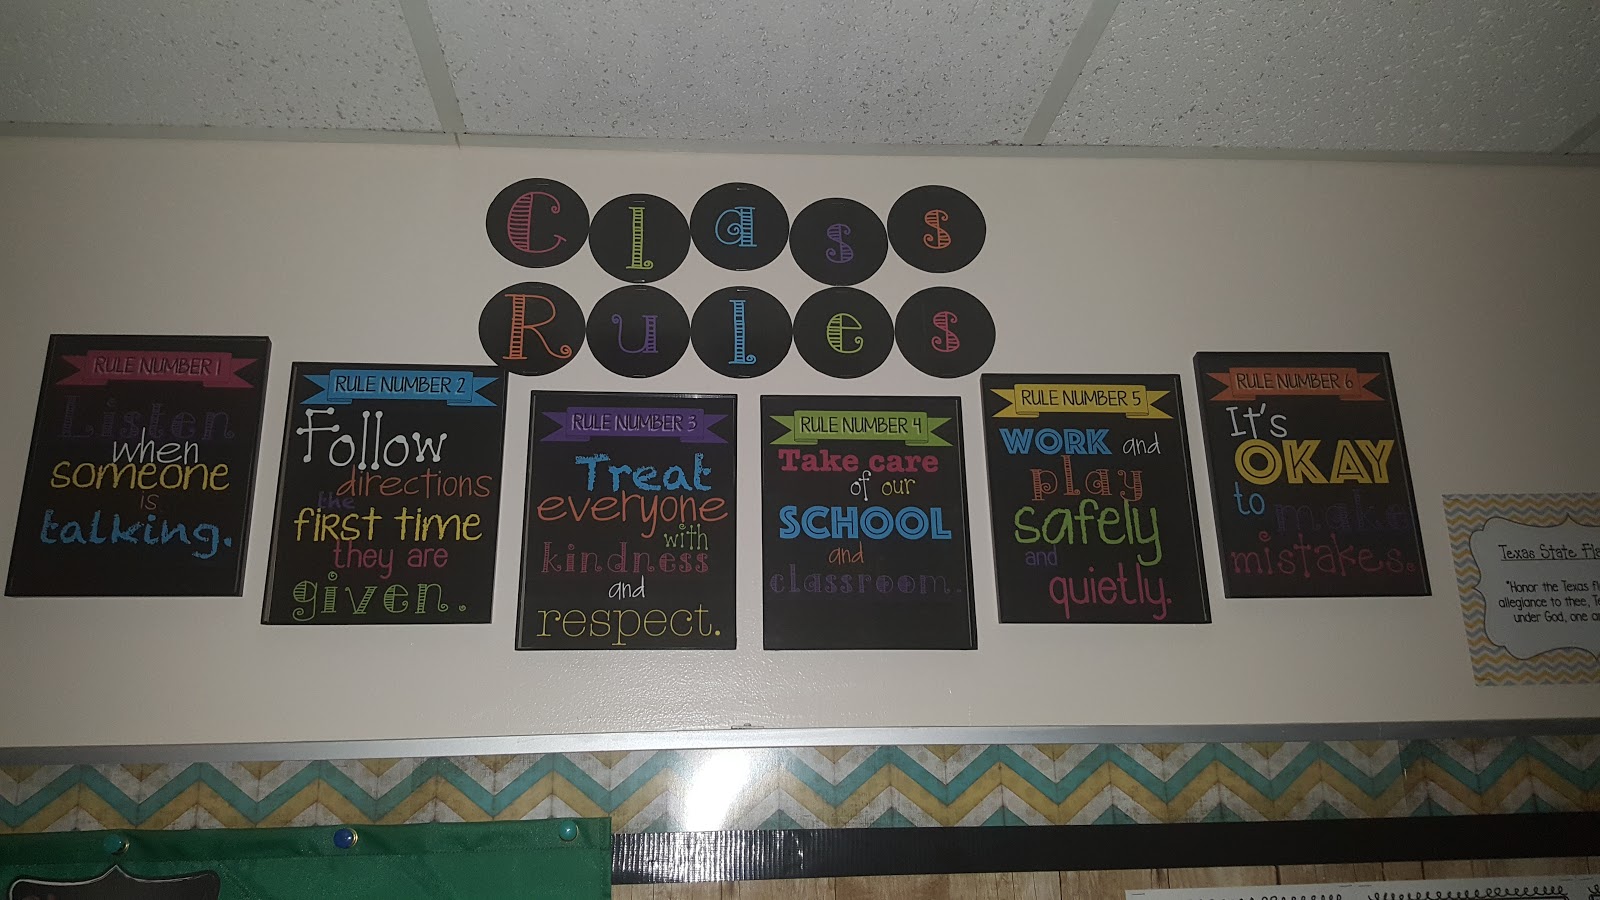 Class
Rules
RULE NUMBER 1
Listen
when
someone
is
talking.
RULE NUMBER 2
Follow
directions
the
first time
they are
given.
RULE NUMBER 3
Treat
everyone
with
kindness
and
respect.
RULE NUMBER 4
Take care
of our
SCHOOL
and
classroom.
RULE NUMBER 5
WORK and
play
safely
and
quietly.
RULE NUMBER 6
It's
OKAY
to make
mistakes.
Texas State
"Honor the Texas
allegiance to thee,
under God, one